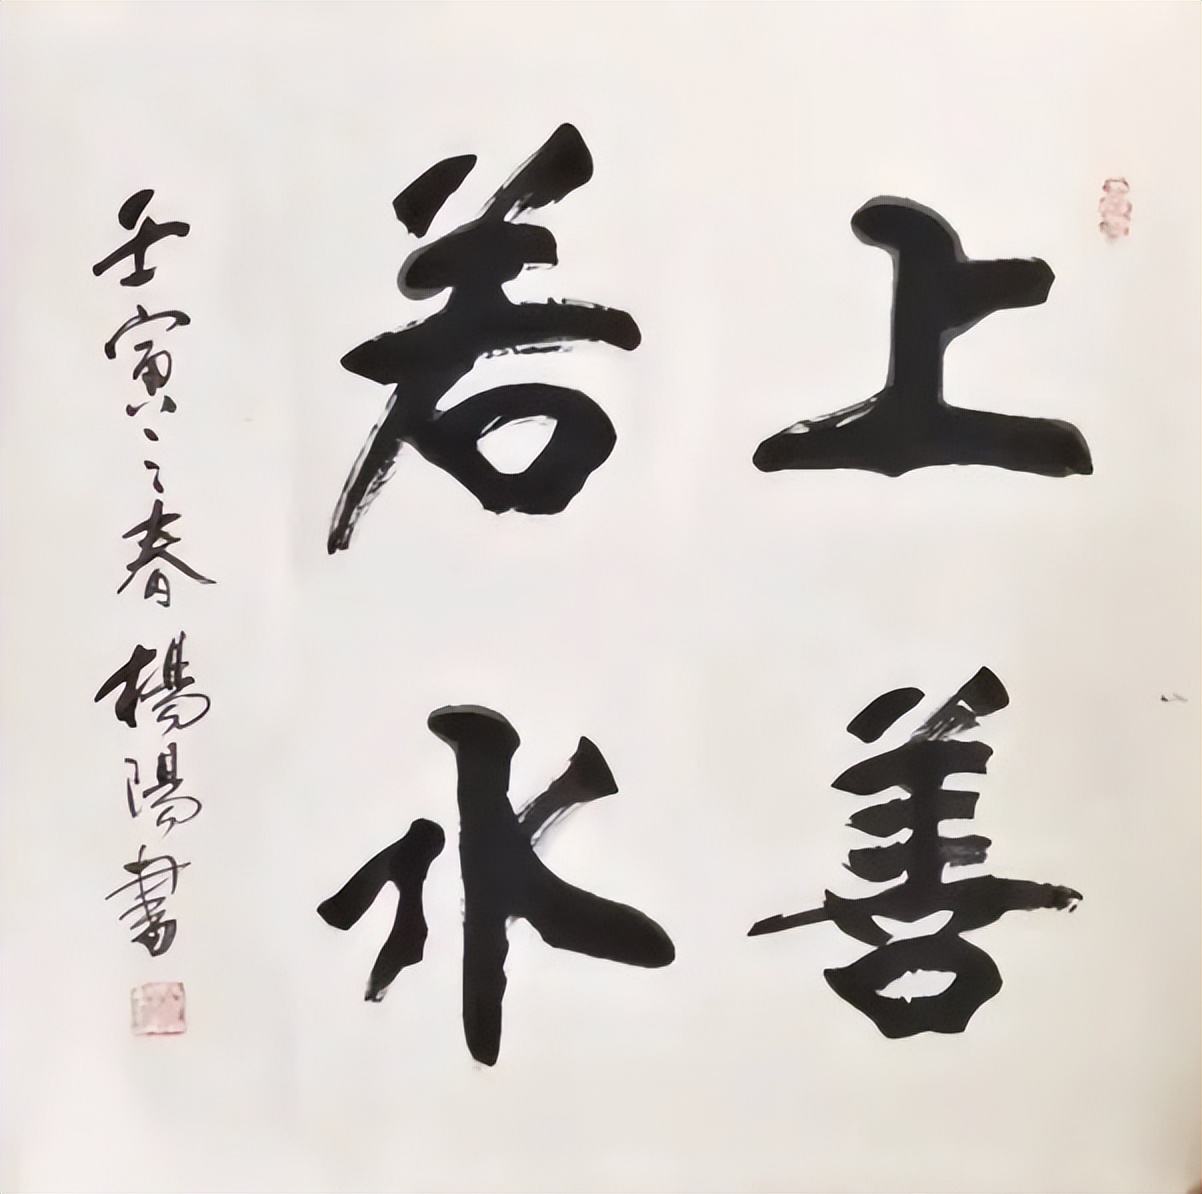 上善
若水
壬寅之春楊陽書